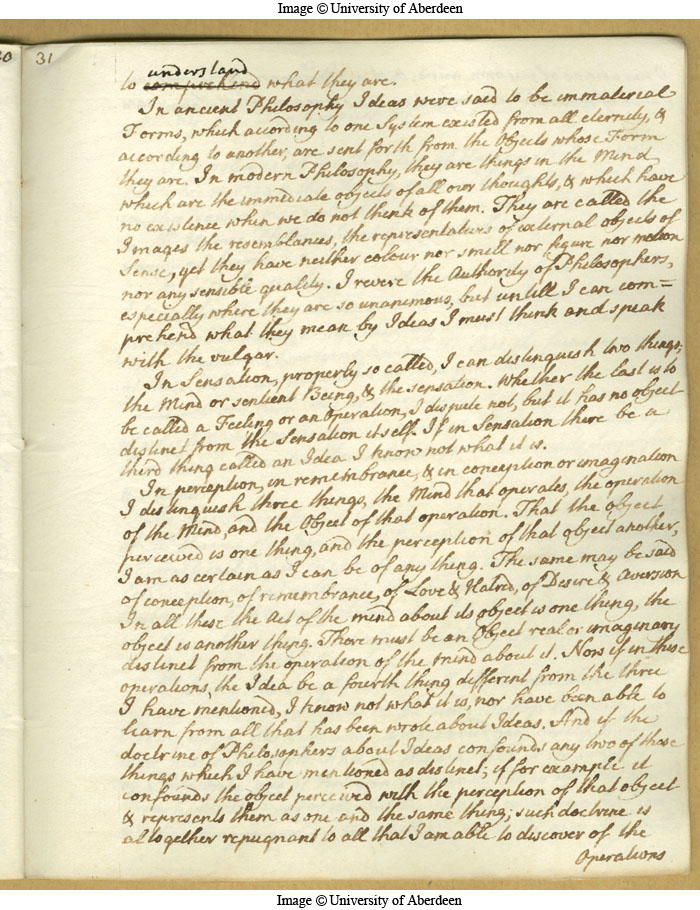 Image © University of Aberdeen
31
understand
to comprehend what they are.
In ancient Philosophy Ideas were said to be immaterial
Forms, which according to one System existed from all eternity, &
according to another, are sent forth from the Objects whose Form
they are. In modern Philosophy, they are things in the Mind
which are the immediate objects of all our thoughts, & which have
no existence when we do not think of them. They are called the
Images the resemblances, the representatives of external objects of
Sense, yet they have neither colour nor smell nor figure nor motion
nor any sensible quality. I revere the Authority of Philosophers,
especially where they are so unanimous, but untill I can com=
prehend what they mean by Ideas I must think and speak
with the vulgar.
In Sensation, properly so called, I can distinguish two things;
the Mind or sentient Being, & the sensation. Whether the last is to
be called a Feeling or an Operation, I dispute not, but it has no object
distinct from the Sensation itself. If in Sensation there be a
third thing called an Idea I know not what it is.
In perception, in remembrance, & in conception or imagination
I distinguish three things, the Mind that operates, the operation
of the Mind, and the Object of that operation. That the object
perceived is one thing, and the perception of that object another,
I am as certain as I can be of any thing. The same may be said
of conception, of remembrance, of Love & Hatred, of Desire & Aversion
In all these the Act of the mind about its object is one thing, the
object is another thing. There must be an Object real or imaginary
distinct from the operation of the mind about it. Now if in these
operations, the Idea be a fourth thing different from the three
I have mentioned, I know not what it is, nor have been able to
learn from all that has been wrote about Ideas. And if the
doctrine of Philosophers about Ideas confounds any two of these
things which I have mentioned as distinct; if for example it
confounds the object perceived with the perception of that object
& represents them as one and the same thing; such doctrine is
altogether repugnant to all that I am able to discover of the
Operations
Image © University of Aberdeen